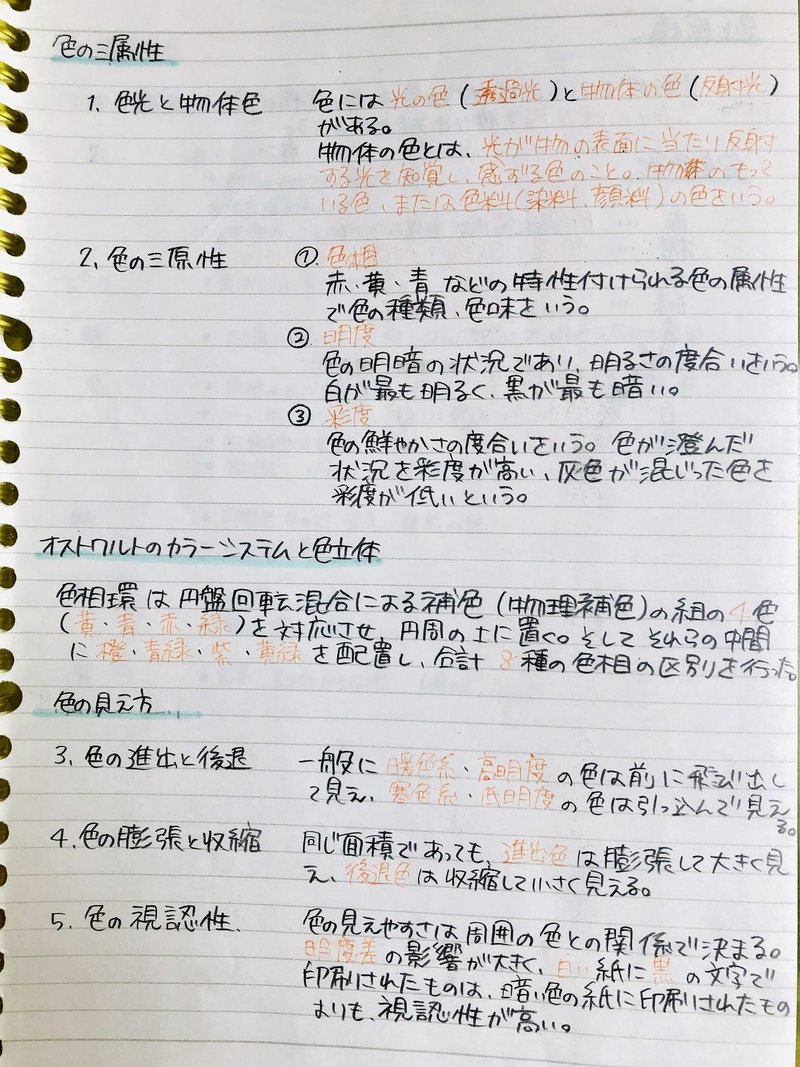 色の三属性
1. 色光と物体色 色には光の色(透過光)と物体の色(反射光)
がある。
物体の色とは、光が物の表面に当たり反射
する光を知覚し、感ずる色のこと。物体のもって
いる色、または色料(染料、顔料)の色をいう。
2. 色の三原性 ① 色相
赤・黄・青などの特性付けられる色の属性
で色の種類、色味をいう。
② 明度
色の明暗の状況であり、明るさの度合いをいう。
白が最も明るく、黒が最も暗い。
③ 彩度
色の鮮やかさの度合いをいう。色が澄んだ
状況を彩度が高い、灰色が混じった色を
彩度が低いという。
オストワルトのカラーシステムと色立体
色相環は円盤回転混合による補色(物理補色)の組の4色
(黄・青・赤・緑)を対応させ、円周の上に置く。そしてそれらの中間
に橙・青緑・紫・黄緑を配置し、合計8種の色相の区別を行った。
色の見え方
3. 色の進出と後退 一般に暖色系・高明度の色は前に飛び出し
て見え、寒色系・低明度の色は引っ込んで見え
る。
4. 色の膨張と収縮 同じ面積であっても、進出色は膨張して大きく見
え、後退色は収縮して小さく見える。
5. 色の視認性、 色の見えやすさは周囲の色との関係で決まる。
明度差の影響が大きく、白い紙に黒の文字で
印刷されたものは、暗い色の紙に印刷されたもの
よりも、視認性が高い。